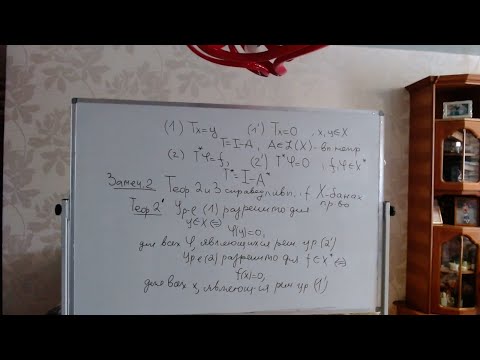 (1) Tx=y (1') Tx=0 , x,y∈X
T=I-A, A∈L(X)-вполне непр
(2) T*φ=f, (2') T*φ=0 , f,φ∈X*
T*=I-A*
Замеч.2 Теор 2 и 3 справедливы, X-банах
пр во
Теор 2' Ур-е (1) разрешимо для
y∈X ⇔ φ(y)=0,
для всех φ, являющихся реш ур (2')
Ур е (2) разрешимо для f∈X* ⇔
f(x)=0,
для всех x, являющ-ся реш ур (1')